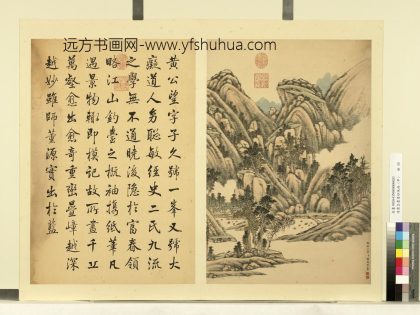 远方书画网-www.yfshuhua.com
黄公望字子久號一峯又號大
癡道人易聰敏經史二氏九流
之學無不通曉後隱於富春領
略江山釣臺之概袖攜紙筆凡
遇景物輒即模記故所畫千丘
萬壑愈出愈奇重巒疊嶂越深
越妙雖師董源實出於藍